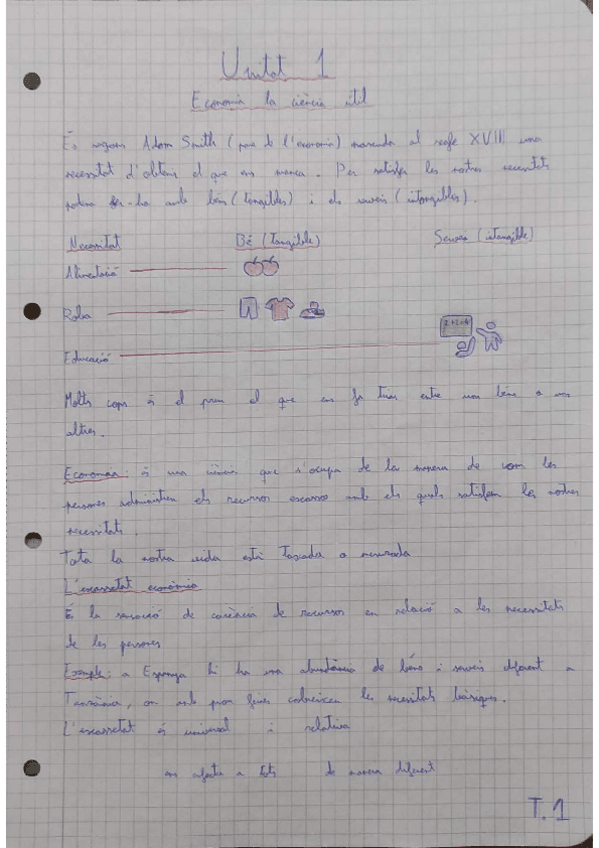 Unitat 1
Economia la ciència útil
És segons Adam Smith (pare de l'economia) nascuda al segle XVIII una
necessitat d'obtenir el que ens manca. Per satisfer les nostres necessitats
podem fer-ho amb béns (tangibles) i els serveis (intangibles).
Necessitat Bé (Tangible) Servei (intangible)
Alimentació
Roba
2+2=4
Educació
Molts cops és el preu el que ens fa triar entre uns béns o uns
altres.
Economia: és una ciència que s'ocupa de la manera de com les
persones administren els recursos escassos amb els quals satisfem les nostres
necessitats.
Tota la nostra vida està Taxada o mesurada
L'escassetat econòmica
És la sensació de carència de recursos en relació a les necessitats
de les persones
Exemple: a Espanya hi ha una abundància de béns i serveis diferent a
Tanzània, on amb prou feines cobreixen les necessitats bàsiques.
L'escassetat és universal i relativa
ens afecta a tots de manera diferent
T.1